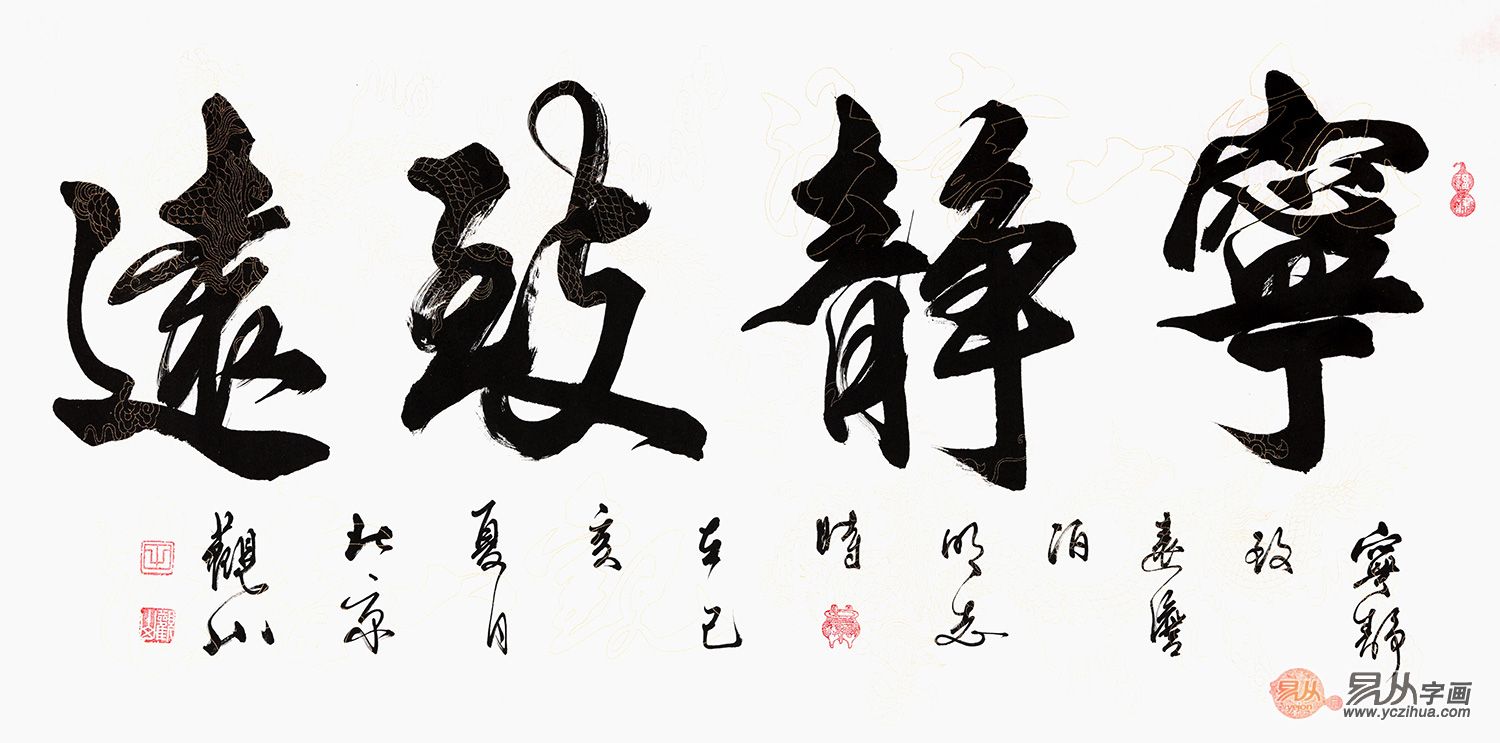 寧靜致遠
寧靜
致
遠澹
泊
明志
時
在己
亥
夏月
北京
觀山
易从字画
www.yczihua.com
yeion